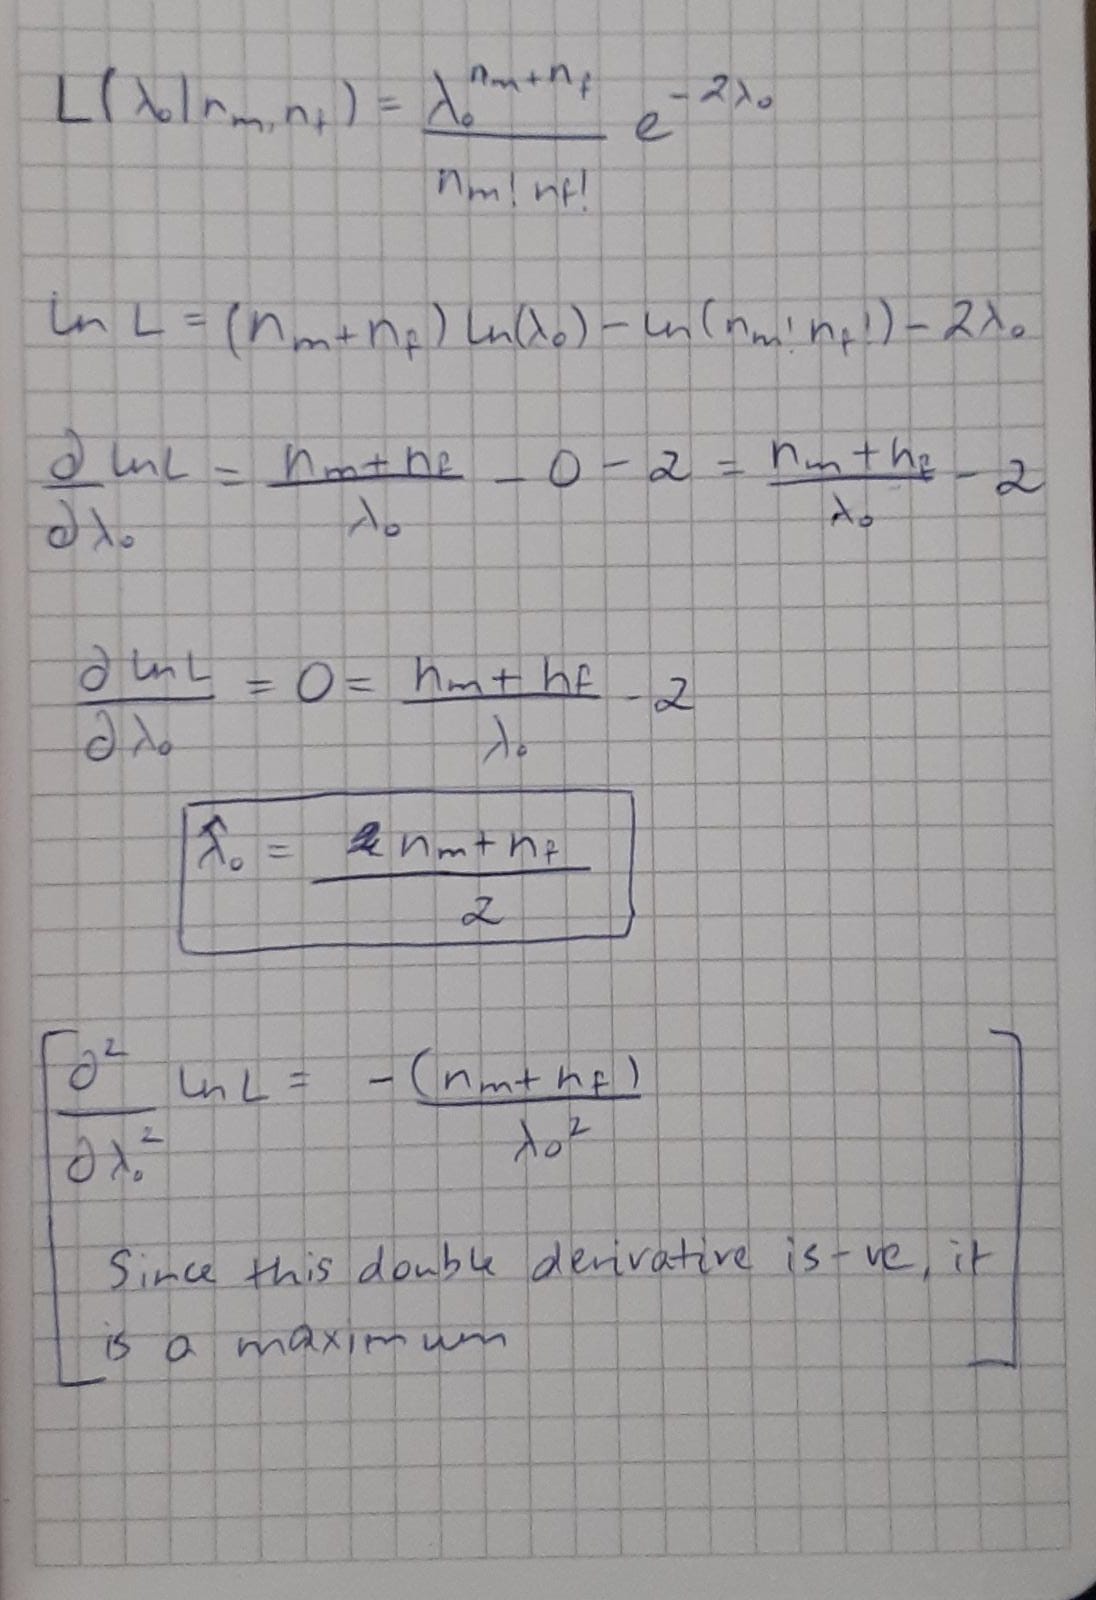 L(λ₀|nₘ, n_f) = λ₀^(nₘ+n_f) / (nₘ! n_f!) e^(-2λ₀)
ln L = (nₘ+n_f) ln(λ₀) - ln(nₘ! n_f!) - 2λ₀
∂/∂λ₀ ln L = (nₘ+n_f)/λ₀ - 0 - 2 = (nₘ+n_f)/λ₀ - 2
∂ ln L/∂λ₀ = 0 = (nₘ+n_f)/λ₀ - 2
λ̂₀ = (nₘ+n_f)/2
[∂²/∂λ₀² ln L = -(nₘ+n_f)/λ₀²
Since this double derivative is -ve, it
is a maximum]